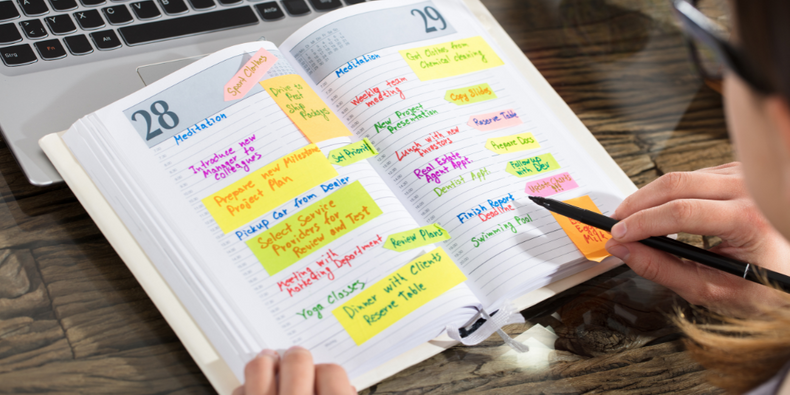 28
Sport Clothes
Meditation
Drive to
Post
Ship Packages
Introduce new
Manager to
colleagues
Set Priority
Prepare new Milestone
Project Plan
Pickup Car from Dealer
Select Service
Providers for
Review and Test
Review Plans
Meeting with
Marketing Department
Yoga Classes
Dinner with Clients
Reserve Table
29
Meditation
Get Clothes from
Chemical cleaning
Weekly team
meeting
Copy Guides
New Project
Presentation
Reserve Table
Lunch with new
Investors
Prepare Docs
Real Estate
Agent Appt.
Follow up
with Devs
Dental Appt
Update
Finish Report
Deadline
Swimming Pool